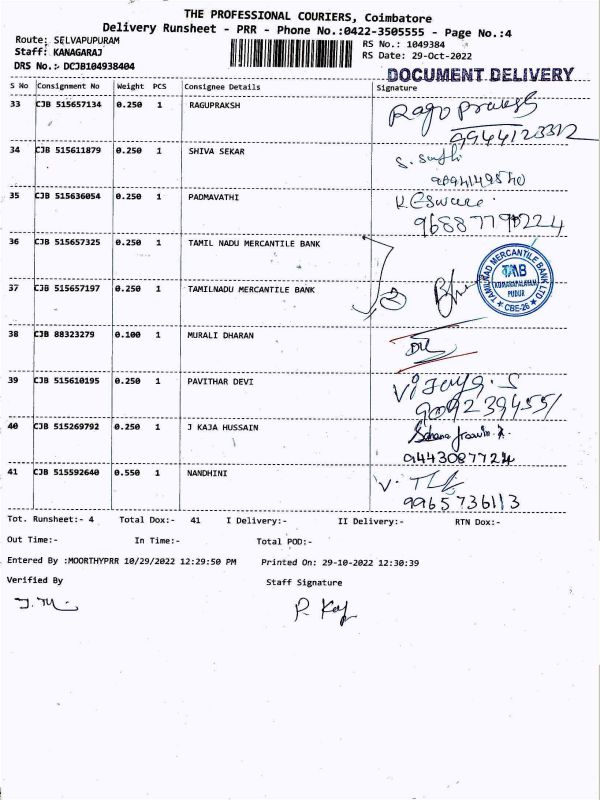 THE PROFESSIONAL COURIERS, Coimbatore
Delivery Runsheet - PRR - Phone No.:0422-3505555 - Page No.:4
Route: SELVAPUPURAM
RS No.: 1049384
Staff: KANAGARAJ
RS Date: 29-Oct-2022
DRS No.:- DCJB104938404
DOCUMENT DELIVERY
S No Consignment No Weight PCS Consignee Details Signature
33 CJB 515657134 0.250 1 RAGUPRAKSH
9944123312
34 CJB 515611879 0.250 1 SHIVA SEKAR
35 CJB 515636054 0.250 1 PADMAVATHI K. Eswari
36 CJB 515657325 0.250 1 TAMIL NADU MERCANTILE BANK
37 CJB 515657197 0.250 1 TAMILNADU MERCANTILE BANK 2
TAMILNAD MERCANTILE BANK LTD
TMB
KUMARAPALAYAM
PUDUR
CBE-26
38 CJB 88323279 0.100 1 MURALI DHARAN
39 CJB 515610195 0.250 1 PAVITHAR DEVI Vijaya. S
40 CJB 515269792 0.250 1 J KAJA HUSSAIN
9443087724
41 CJB 515592640 0.550 1 NANDHINI
9965736113
Tot. Runsheet:- 4 Total Dox:- 41 I Delivery:- II Delivery:- RTN Dox:-
Out Time:- In Time:- Total POD:-
Entered By :MOORTHYPRR 10/29/2022 12:29:50 PM Printed On: 29-10-2022 12:30:39
Verified By Staff Signature